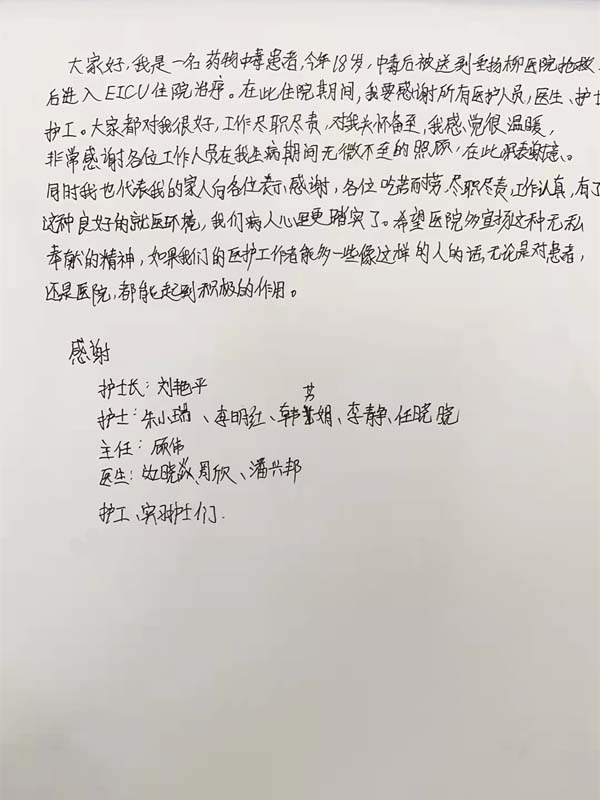 大家好,我是一名药物中毒患者,今年18岁,中毒后被送到垂杨柳医院抢救
后进入EICU住院治疗。在此住院期间,我要感谢所有医护人员,医生、护士
护工。大家都对我很好,工作尽职尽责,对我关怀备至,我感觉很温暖,
非常感谢各位工作人员在我生病期间无微不至的照顾,在此深表谢意。
同时我也代表我的家人向各位表示感谢,各位吃苦耐劳、尽职尽责,工作认真,有了
这种良好的就医环境,我们病人心里更踏实了。希望医院多宣扬这种无私
奉献的精神,如果我们的医护工作者能多一些像这样的人的话,无论是对患者,
还是医院,都能起到积极的作用。
感谢
护士长:刘艳平
护士:朱小瑞、李明红、韩芳娟、李静、任晓晓
主任:顾伟
医生:晓 周欣、潘兴邦
护工、实习护士们.